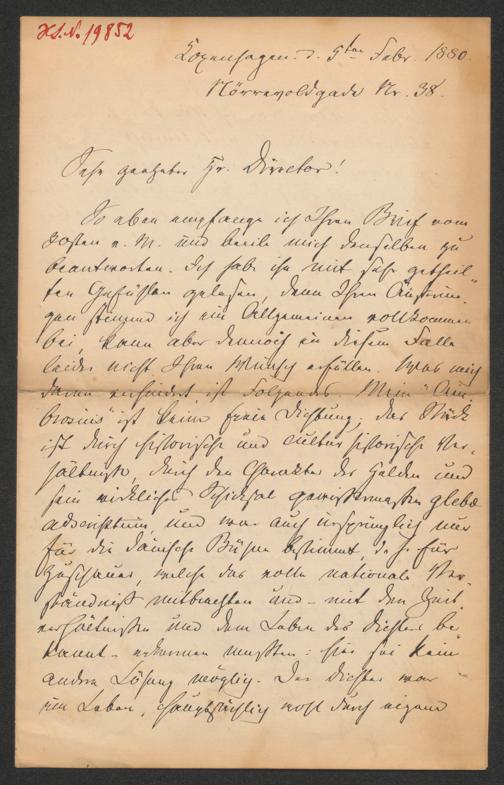 H.I.N. 19852
Kopenhagen. d. 5ten Febr. 1880.
Nörrevoldgade Nr. 38.
Sehr geehrter Hr. Director!
So eben empfange ich Ihren Brief vom
30sten v. M. und beeile mich denselben zu
beantworten. Ich habe ihn mit sehr getheil-
ten Gefühlen gelesen, denn Ihren Äußerun-
gen stimme ich im Allgemeinen vollkommen
bei, kann aber dennoch in diesem Falle
leider nicht Ihren Wunsch erfüllen. Was mich
daran verhindert ist Folgendes. Mein "Am-
brosius" ist keine freie Dichtung; das Stück
ist durch historische und culturhistorische Ver-
hältnisse, durch den Charakter des Helden und
sein wirkliches Schicksal gewissermaßen glebæ
adscriptum, und war auch ursprünglich nur
für die dänische Bühne bestimmt, d. h. für
Zuschauer, welche das volle nationale Ver-
ständniß mitbrachten und – mit den Zeit-
verhältnissen und dem Leben des Dichters be-
kannt – erkennen mußten: hier sei kein
andere Lösung möglich. Der Dichter war
im Leben, hauptsächlich wohl durch eigene